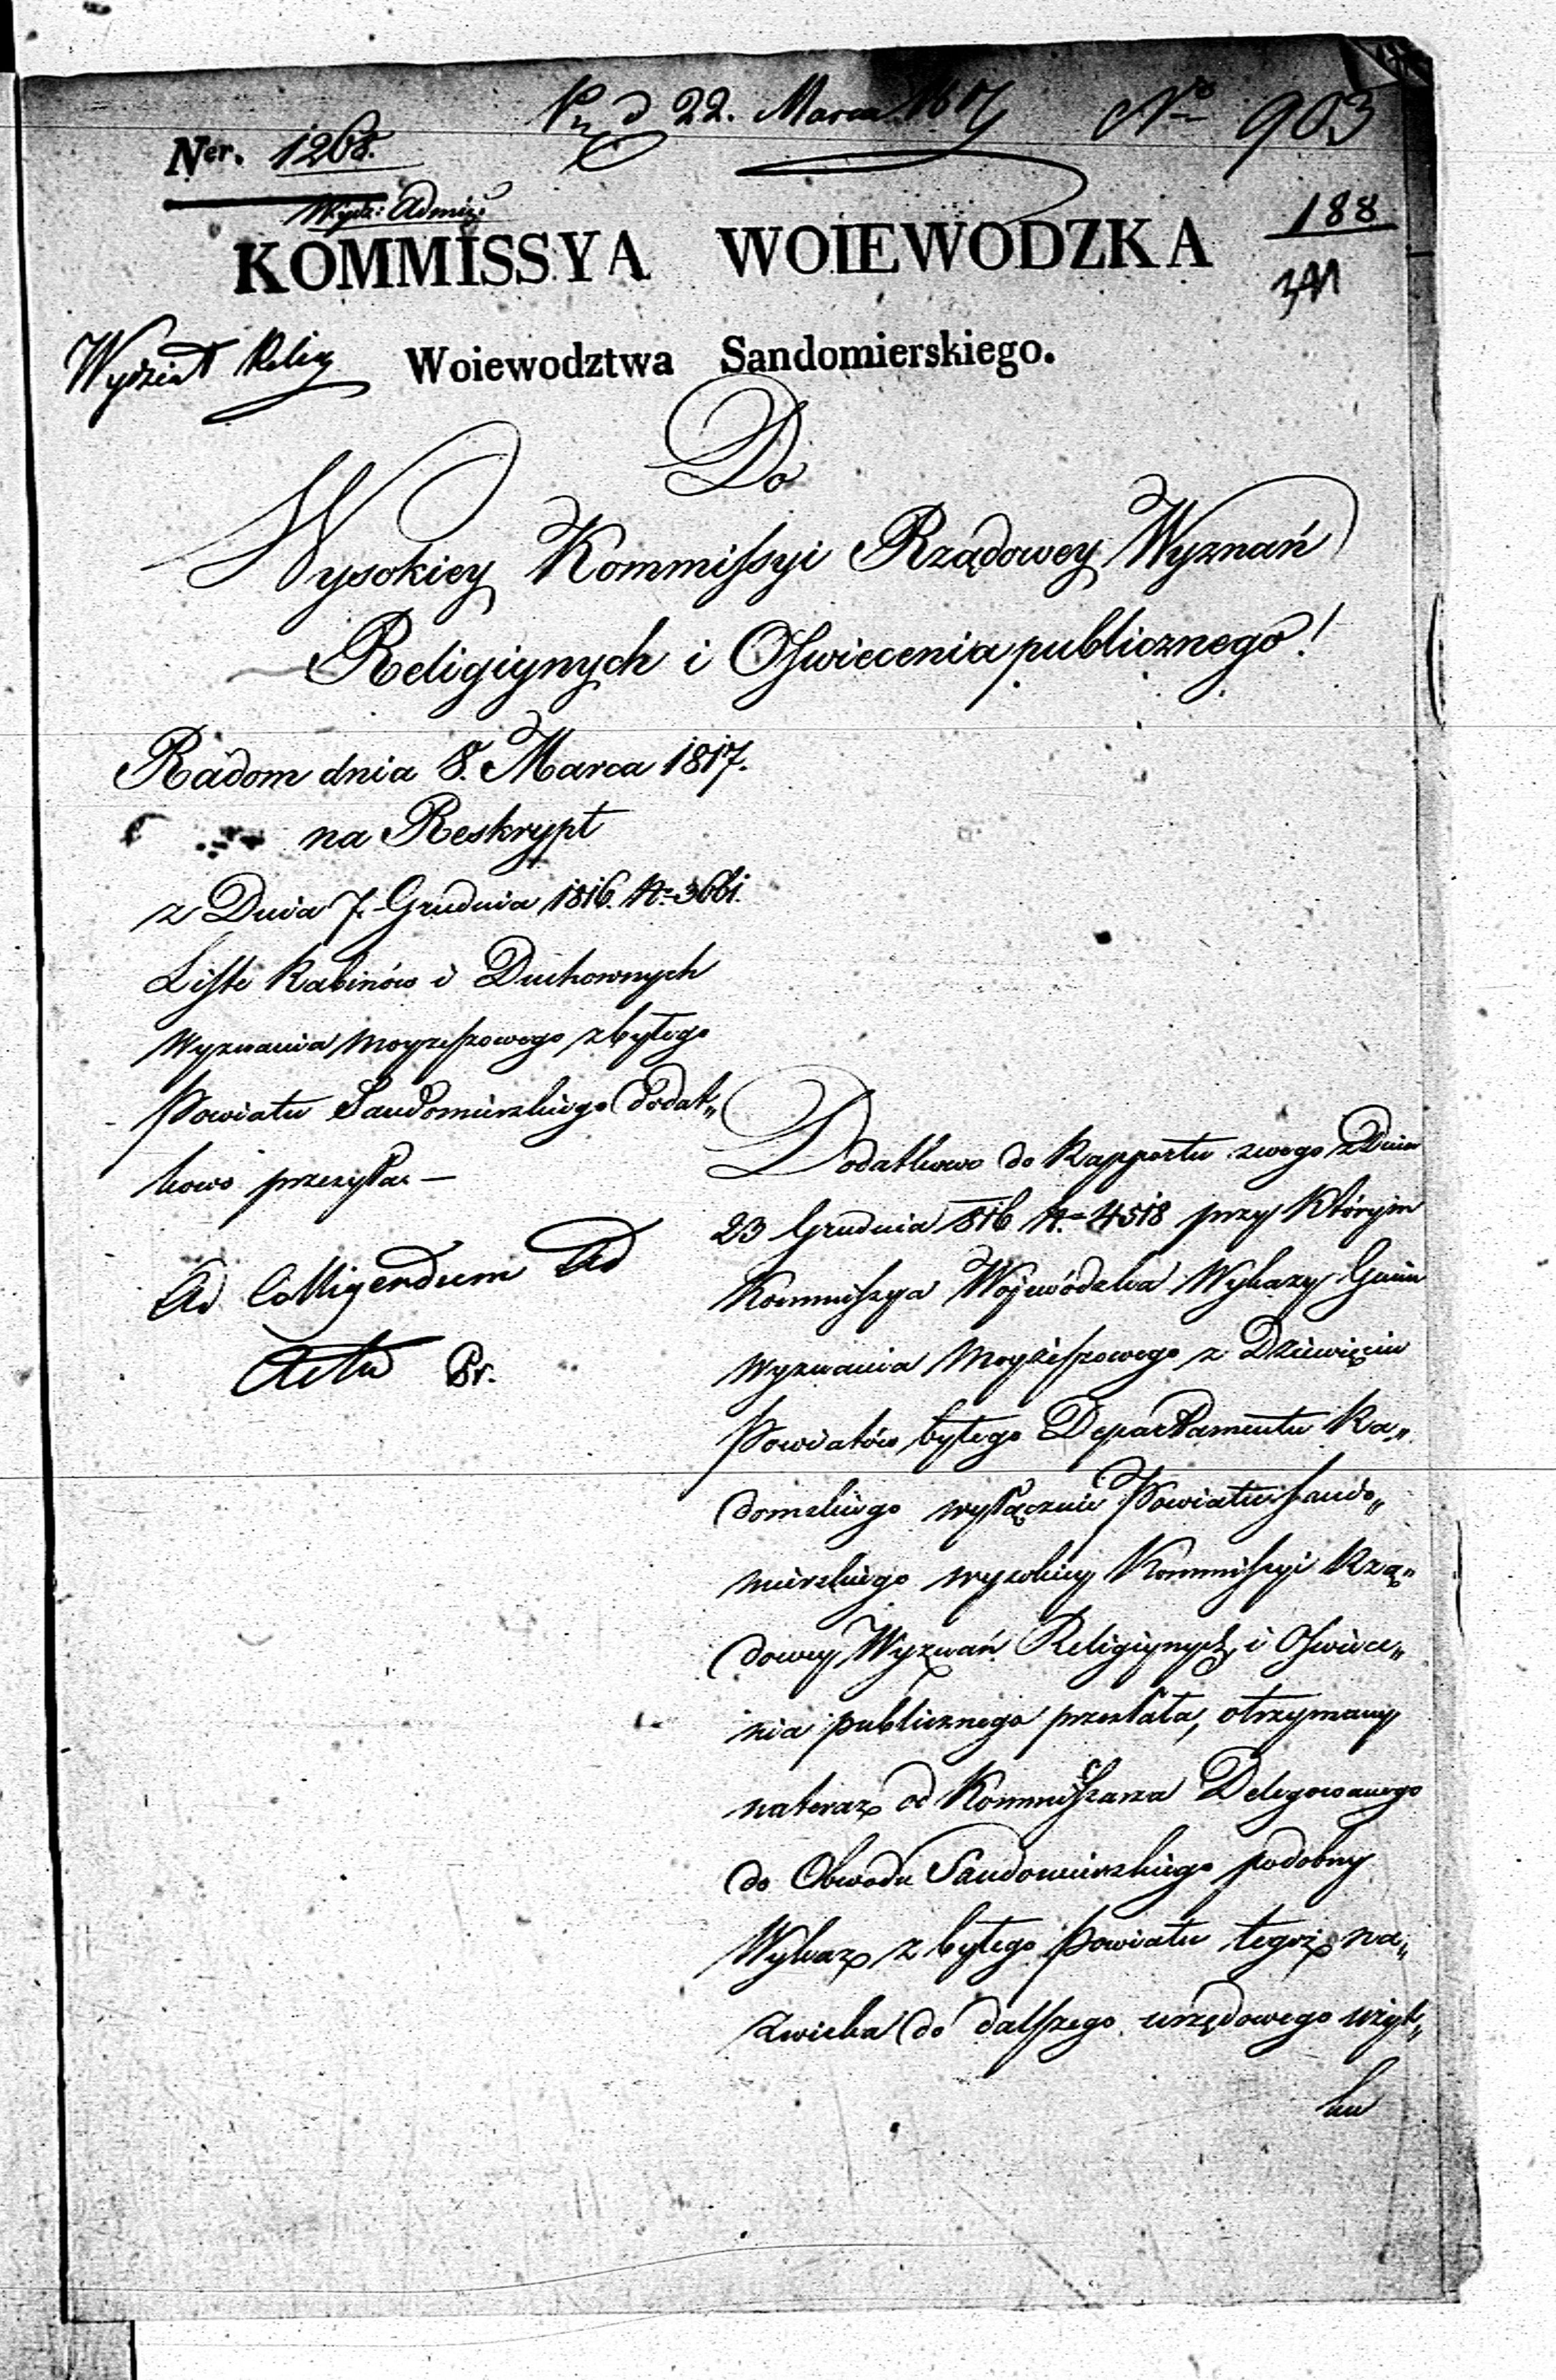 d 22. Marca 1817 No 903
Ner. 1268.
Wydz: Admi:
188
KOMMISSYA WOIEWODZKA
Wydział Relig
Woiewodztwa Sandomierskiego.
Do
Wysokiey Kommissyi Rządowey Wyznań
Religiynych i Oświecenia publicznego!
Radom dnia 8. Marca 1817.
na Reskrypt
z Dnia 7. Grudnia 1816. No 3661.
Liste Rabinów i Duchownych
Wyznania Moyzeszowego z byłego
Powiatu Sandomirskiego dodat„
kowo przesyła. —
Ad Colligendum Ad
Acta Pr.
Dodatkowo do Rapportu swego z Dnia
23 Grudnia 816 No 4518 przy którym
Kommissya Wojewódzka Wykazy Gmin
Wyznania Moyżeszowego z Dziewięciu
Powiatów byłego Departamentu Ra„
domskiego wyłącznie Powiatu Sando„
mirskiego wysokiey Kommissyi Rzą„
dowey Wyznań Religiynych i Oświece„
nia publicznego przesłała, otrzymany
nateraz od Kommissarza Delegowanego
do Obwodu Sandomirskiego podobny
Wykaz z byłego Powiatu tegoż na„
zwiska do dalszego urzędowego użyt„
ku